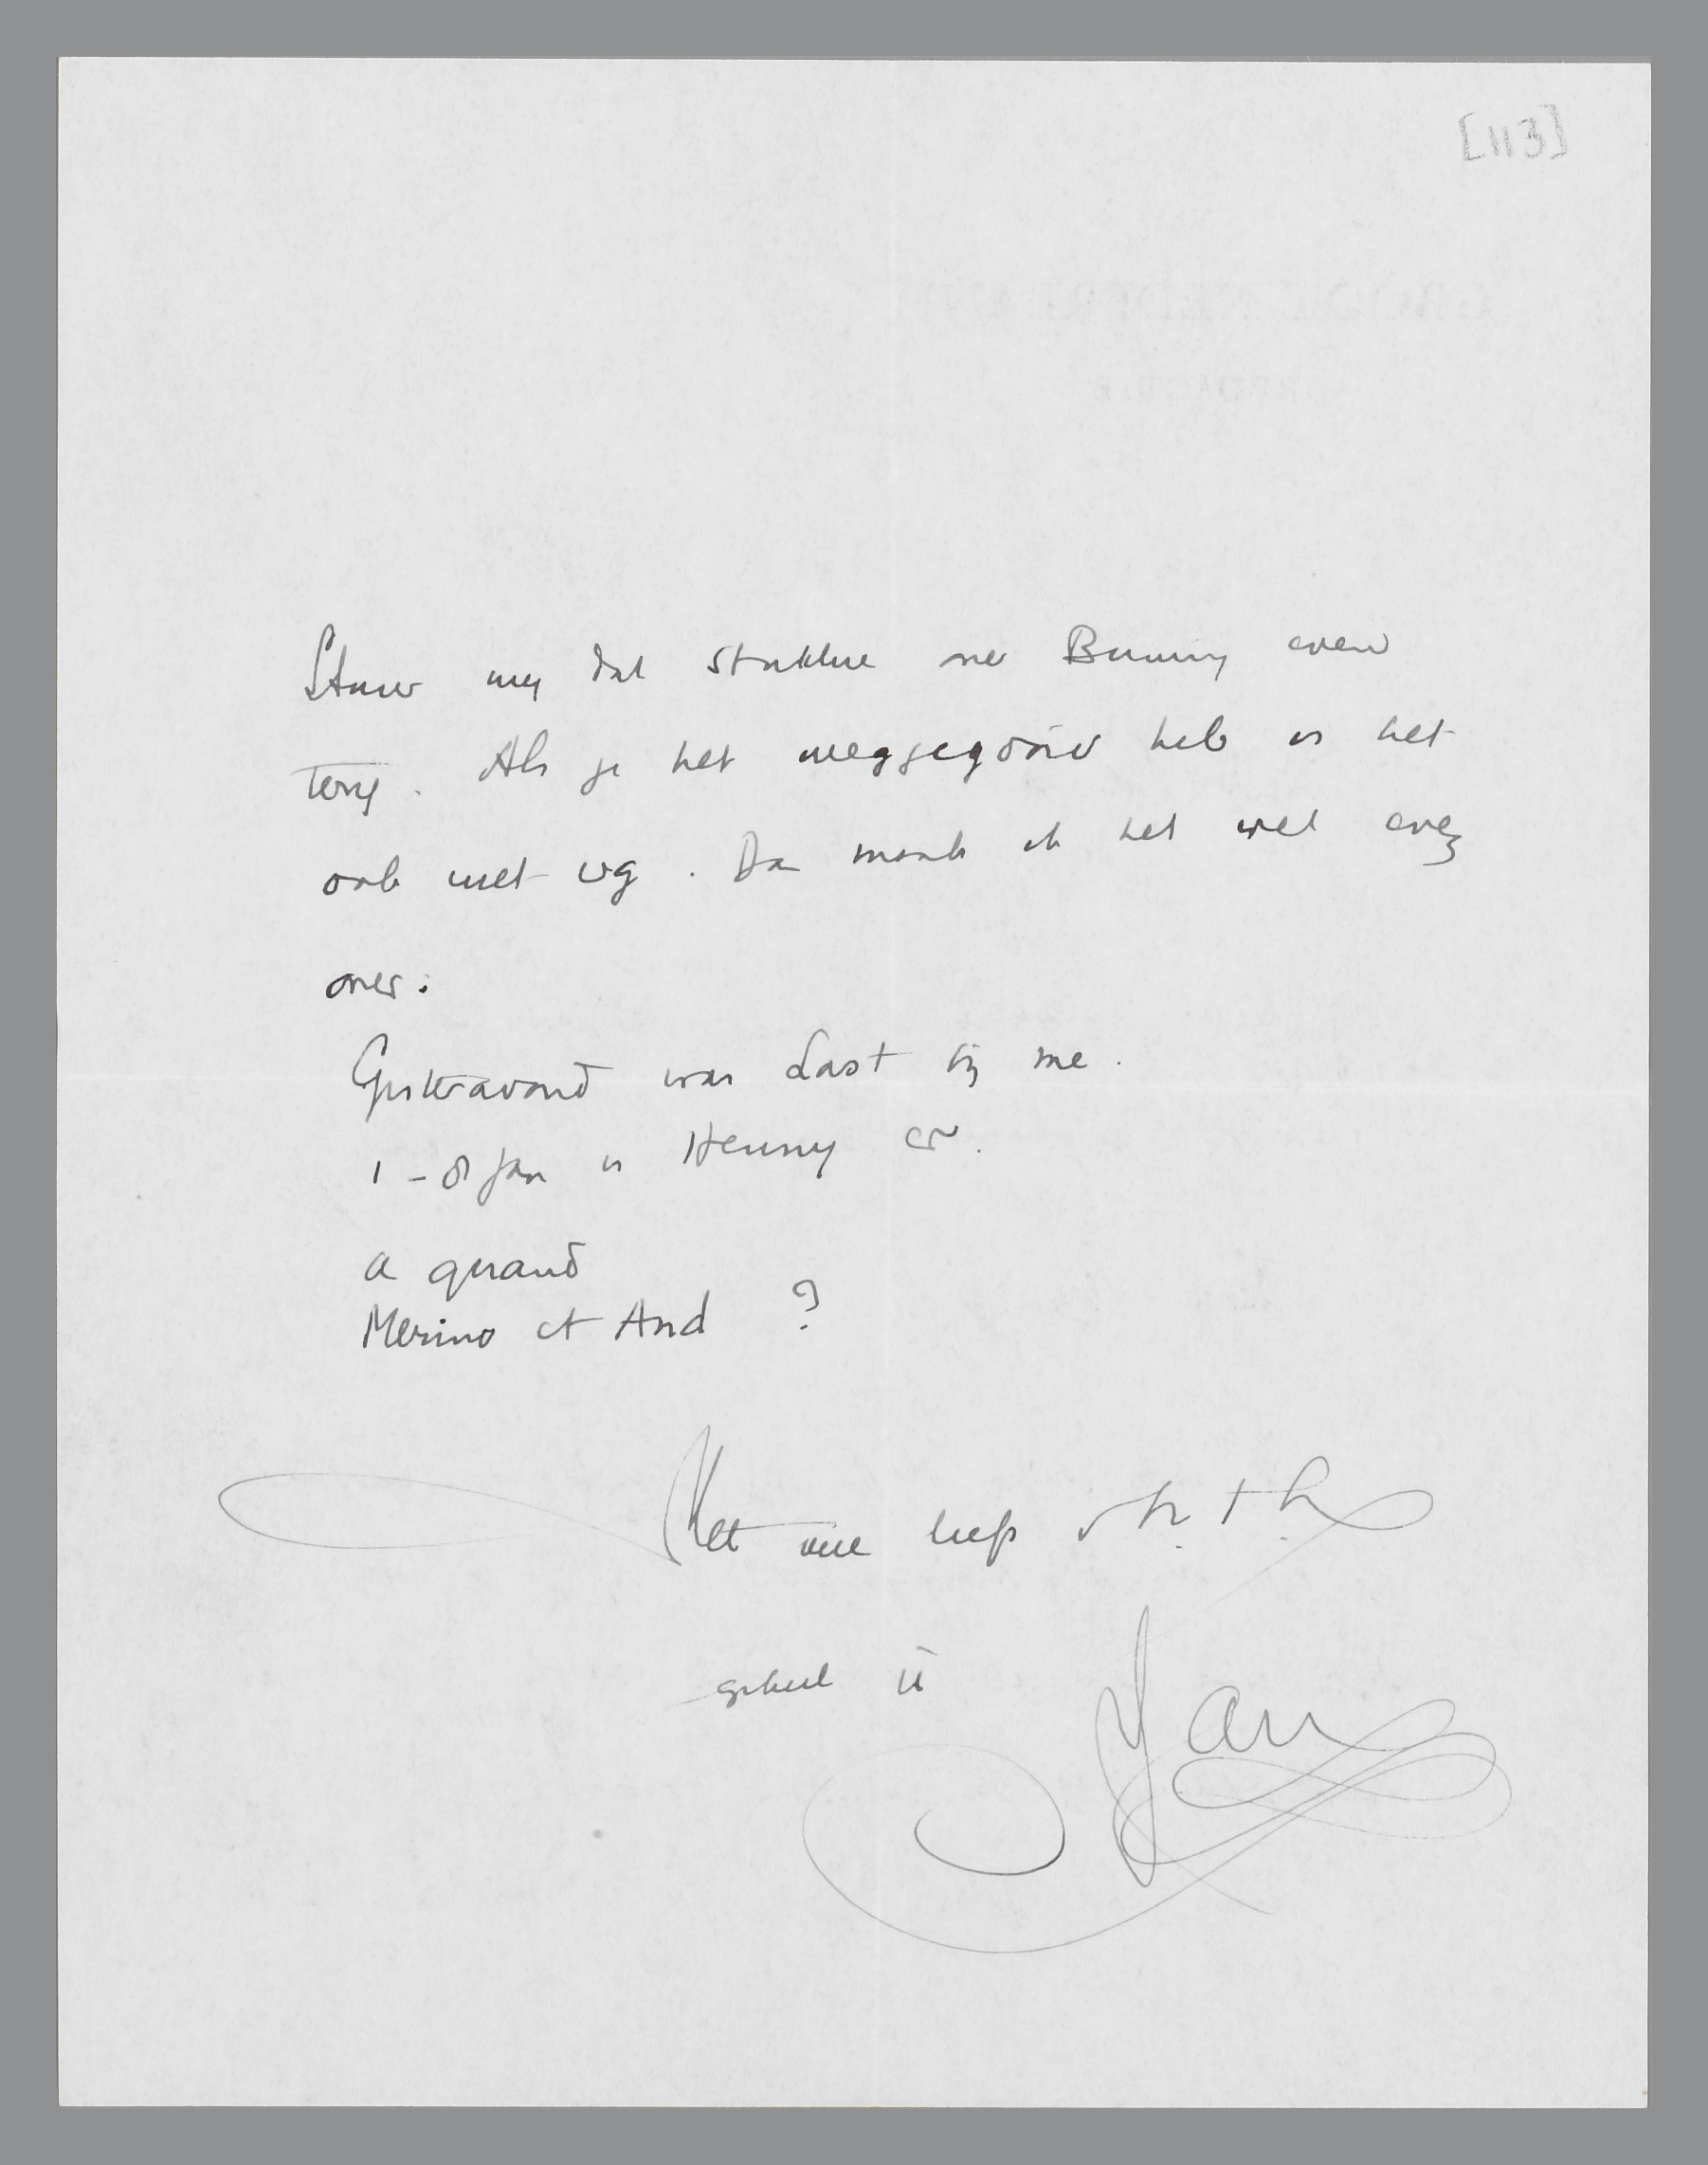 [113]
Stuur mij dat stukkie over Bunny even
terug. Als je het weggegooid heb is het
ook niet erg. Dan maak ik het wel even
over.
Gisteravond was Last bij me.
1 - 8 jan is Henny er.
a quand
Merino et And ?
Met vele liefs v h. t. h
geheel u
Jan